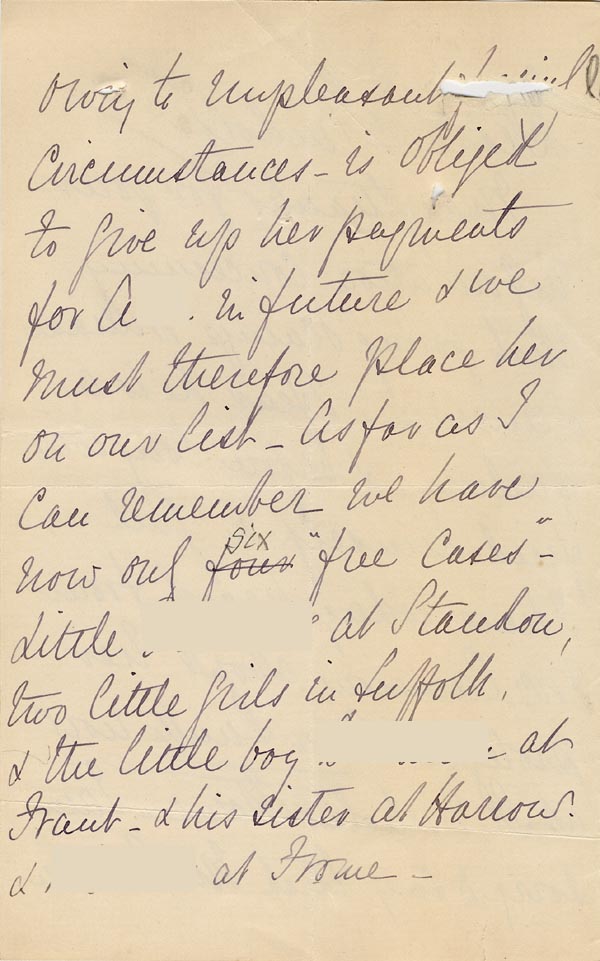 owing to unpleasant
Circumstances - is obliged
to give up her payments
for A . in future & we
must therefore place her
on our list - As far as I
can remember we have
now only four six "free cases" -
Little . at Standon,
two little girls in Suffolk,
& the little boy - at
Frant - & his sister at Harrow.
& . at Frome -